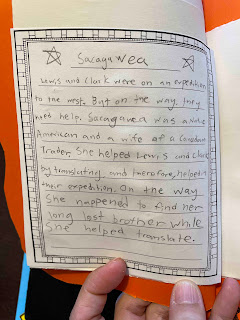 Sacagawea
Lewis and Clark were on an expedition
to the west. But on the way, they
need help. Sacagawea was a native
American and a wife of a Canadian
Trader. She helped Lewis and Clark
by translating and therefore, helped
their expedition. On the way
She happened to find her
long lost brother while
She helped translate.